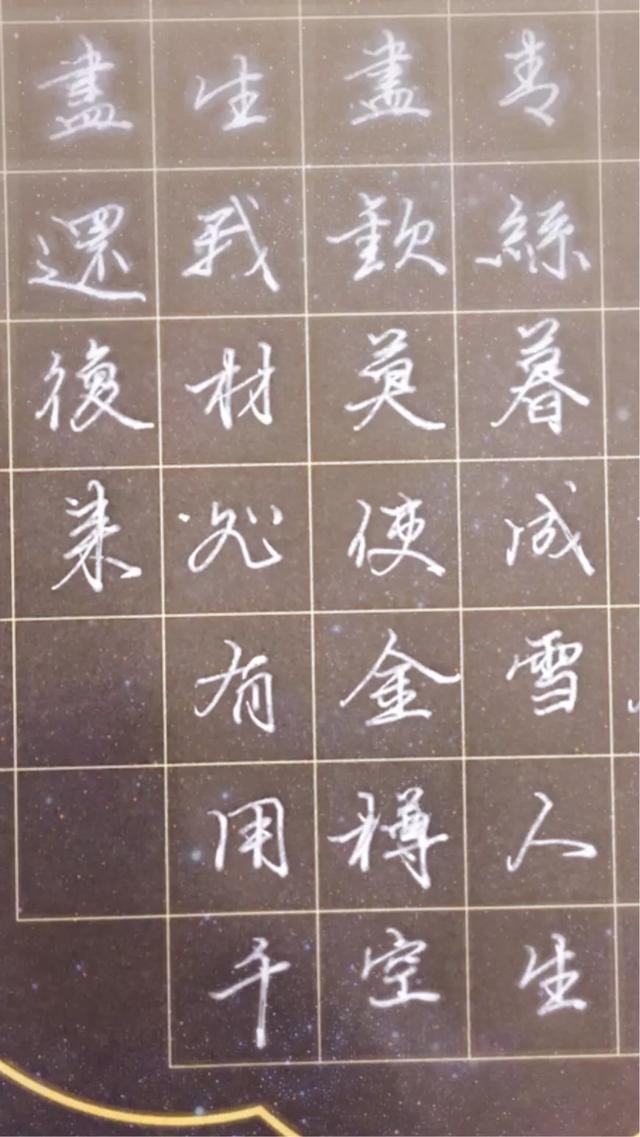 青絲暮成雪人生
盡歡莫使金樽空
生我材必有用千
盡還復來